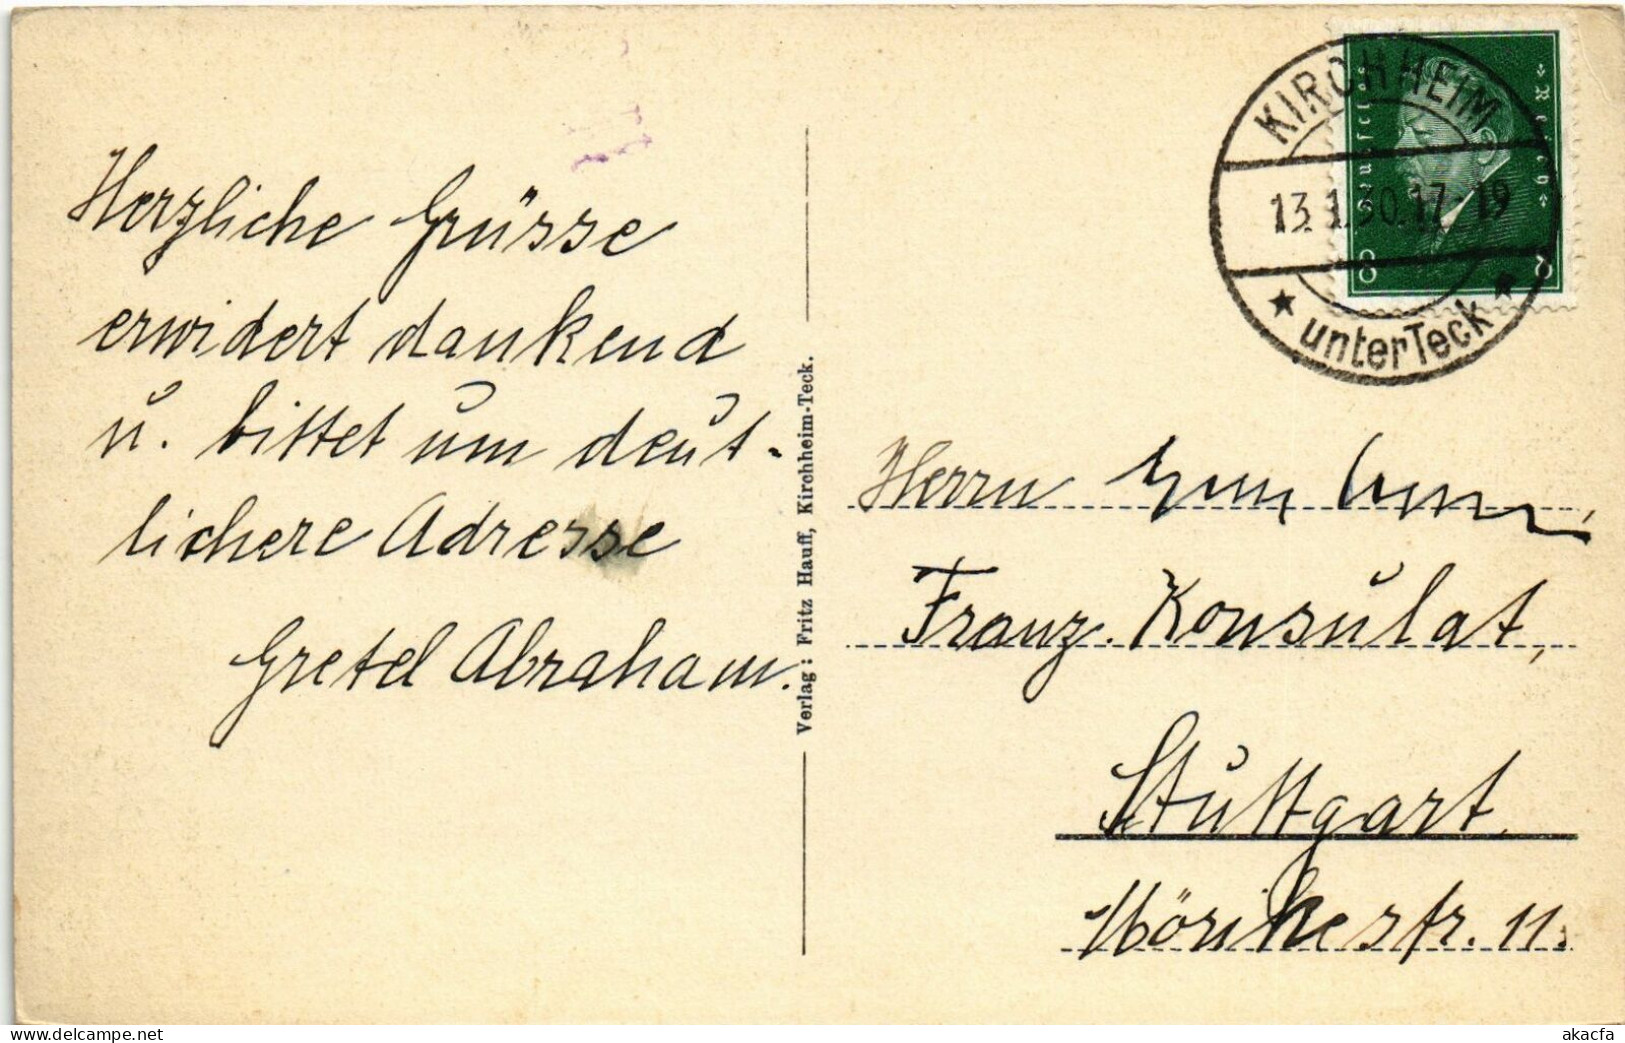 Herzliche Grüsse
erwidert dankend
u. bittet um deut-
lichere Adresse
Gretel Abraham.
Verlag: Fritz Hauff, Kirchheim-Teck.
KIRCHHEIM
13.1.30.17-19
unter Teck
Deutsches
Reich
8 8
Herrn
Franz. Konsulat,
Stuttgart.
Mörikestr. 11.
www.delcampe.net
akacfa